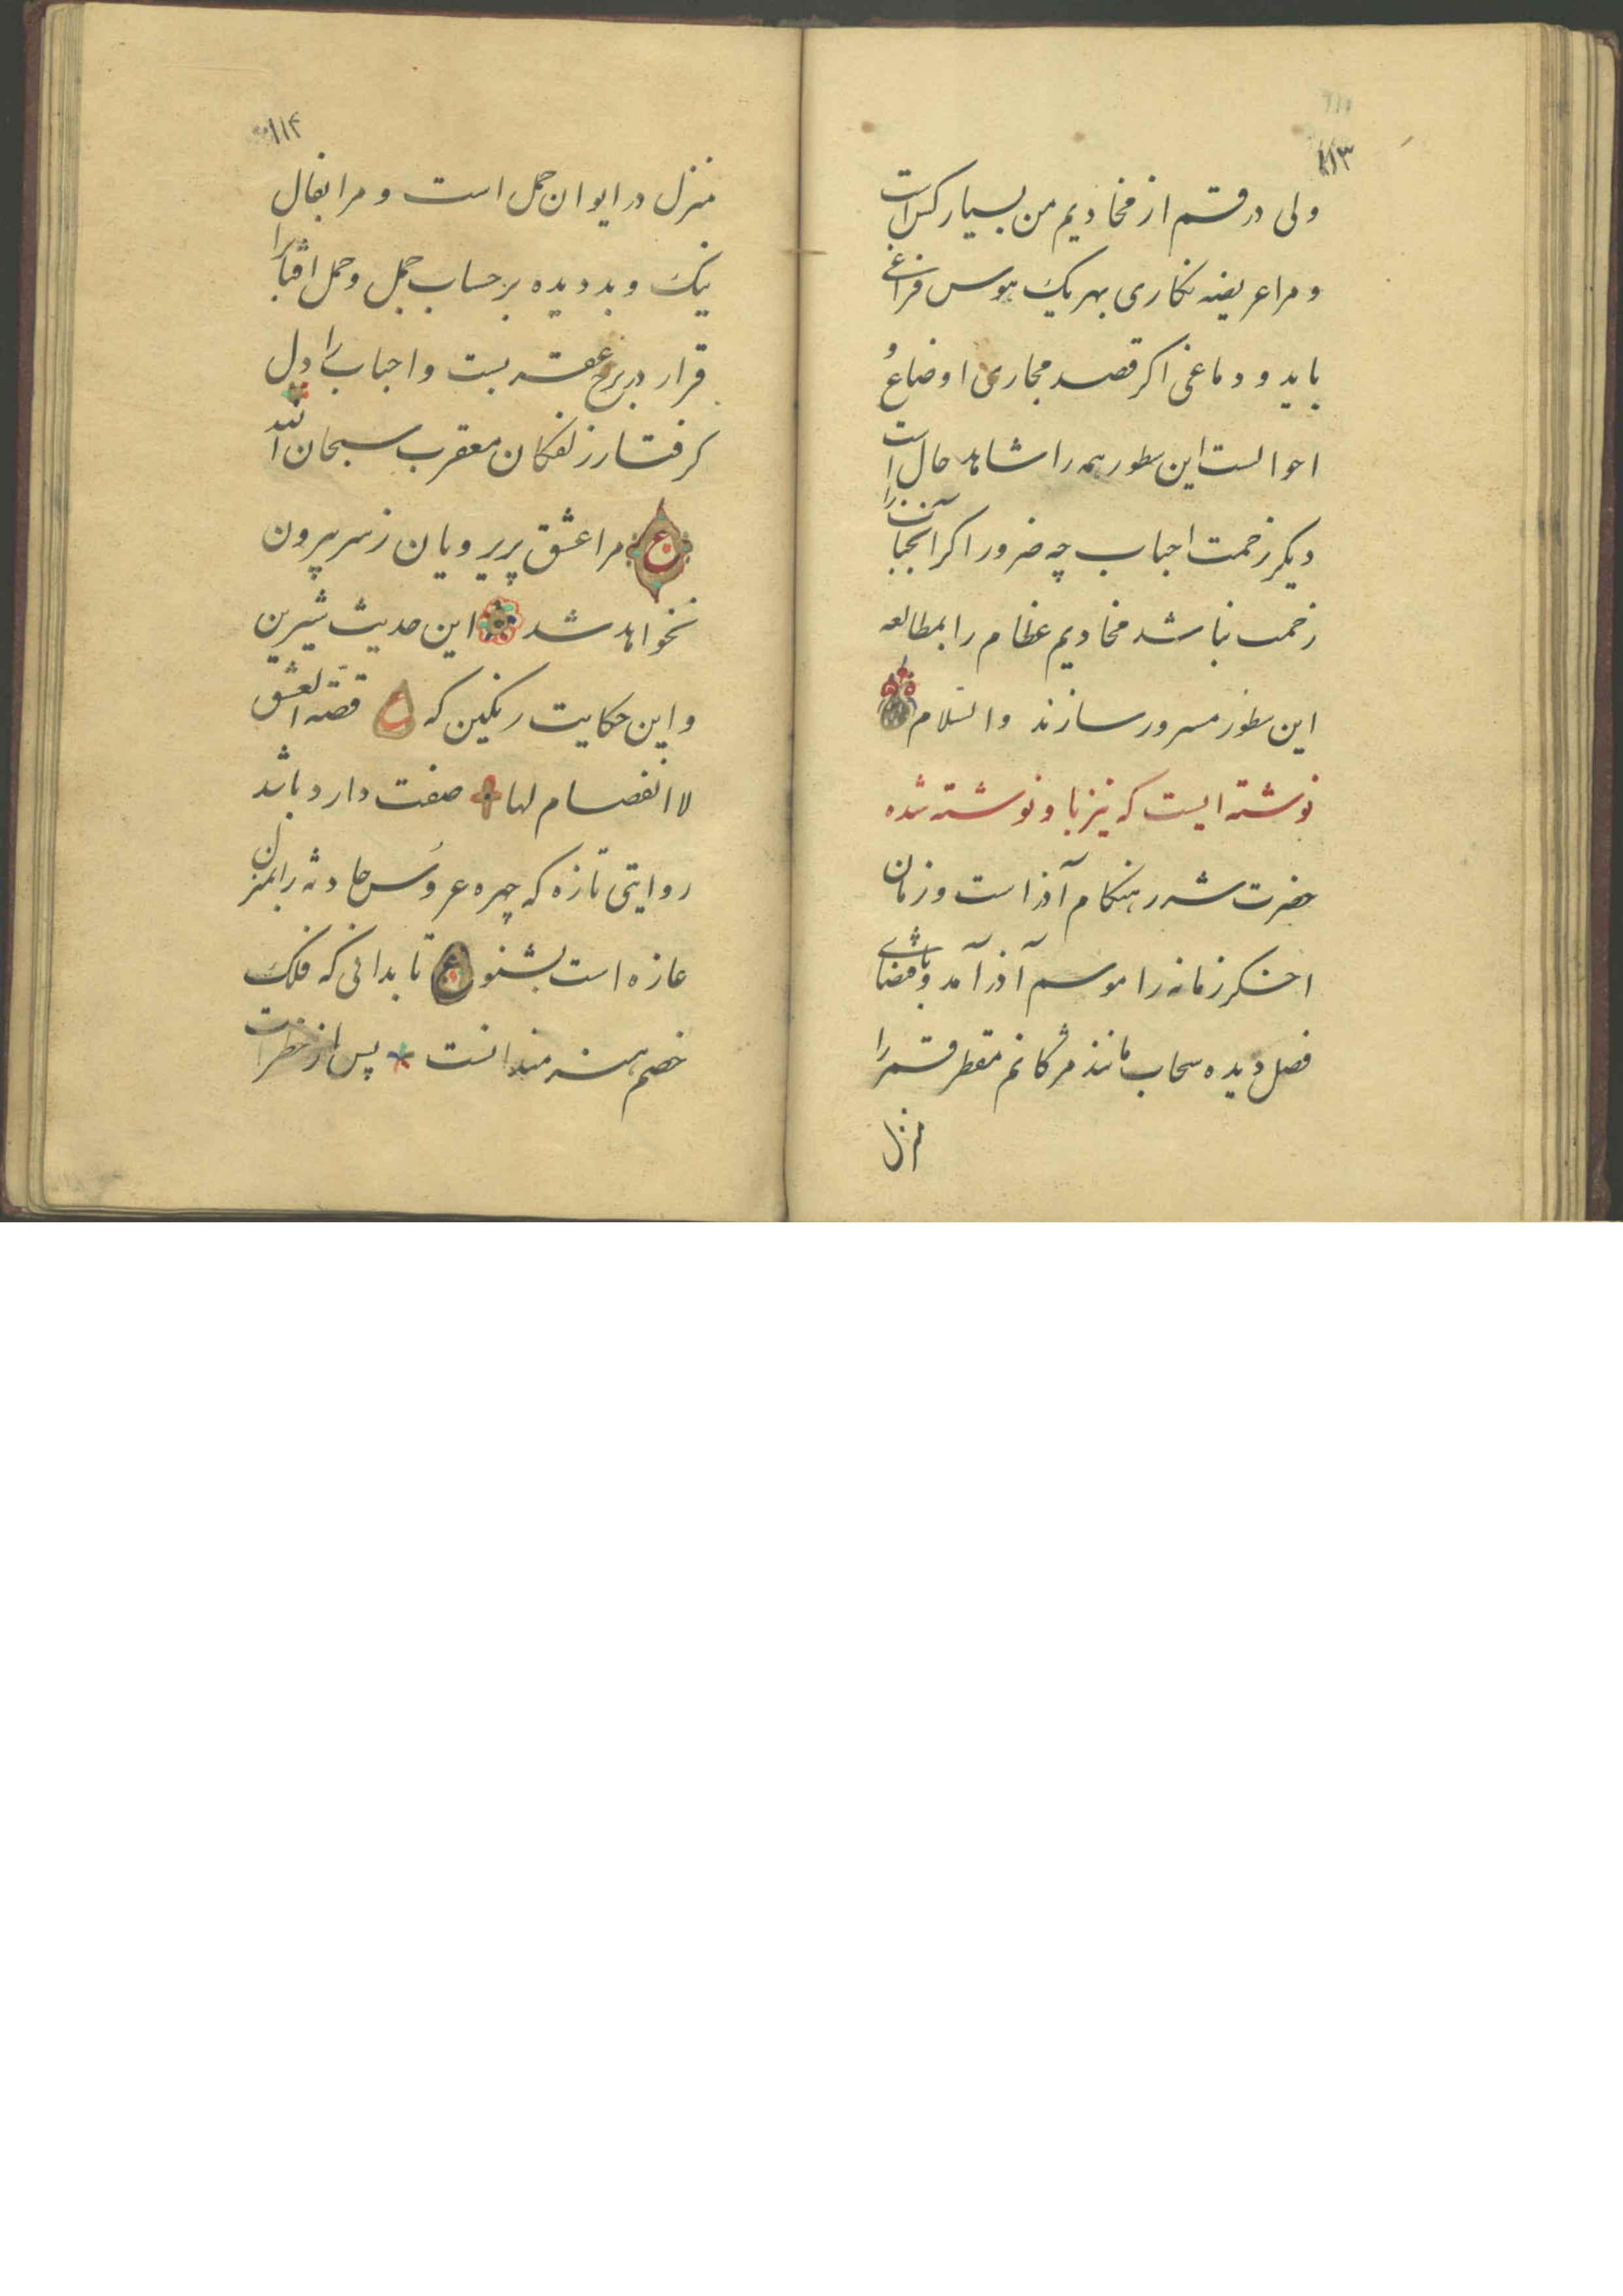 ۱۱۳
ولی در قم از مخادیم من بسیار کس است
و مرا عریضه نکاری بهر یک هوس فراغی
باید و دماغی اکر قصد مجاری اوضاع و
احوالست این سطور همه را شاهد حال است
دیکر زحمت احباب چه ضرور اکر آنجناب را
زحمت نباشد مخادیم عظام را بمطالعه
این سطور مسرور سازند والسلام
نوشته ایست که نیز باو نوشته شده
حضرت شرر هنکام آذر است و زمان
اخکر زمانه را موسم آذر آمد و باقتضای
فصل دیده سحاب مانند مژکانم متقطر قمر را
منزل
۱۱۴
منزل در ایوان حمل است و مرا بفال
نیک و بد دیده بر حساب جمل و حمل اقبال را
قرار در برج عقرب است و احباب را دل
کرفتار زلفکان معقرب سبحان الله
ع مرا عشق پریرویان ز سر بیرون
نخواهد شد این حدیث شیرین
و این حکایت رنکین که ع قصة العشق
لا انفصام لها صفت دارد باید
روایتی تازه که چهره عروس حادثه را بمنزل
غازه است بشنو ع تا بدانی که فلک
خصم هنرمندانست پس از خطرات